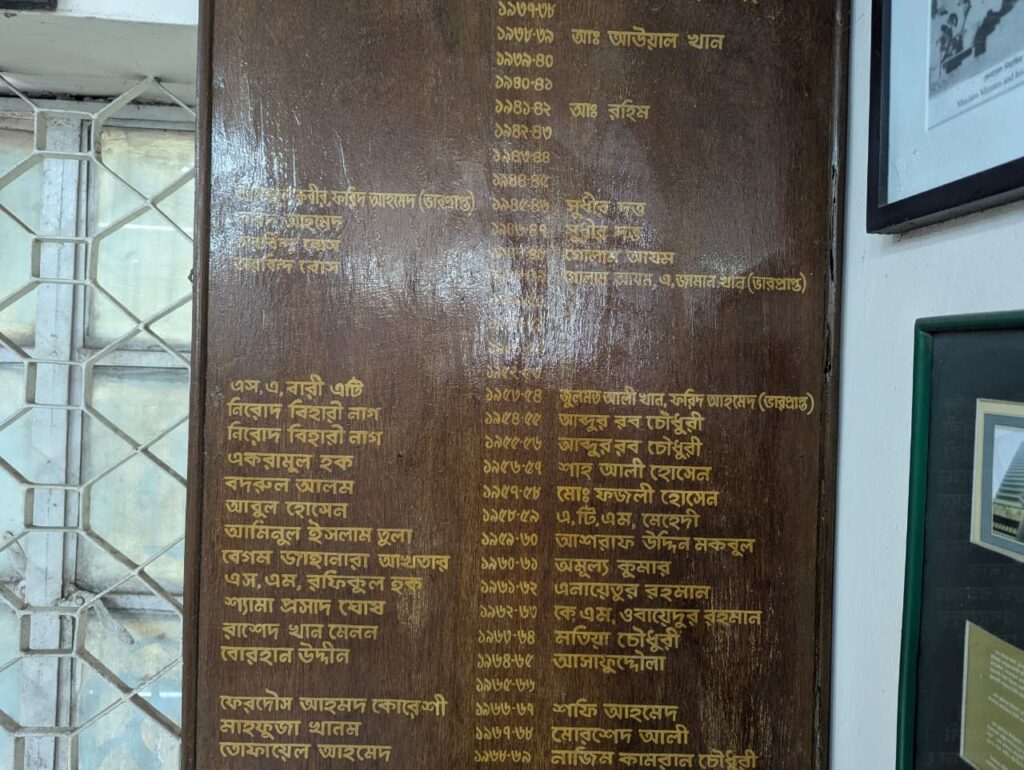 ১৯৩৭-৩৮
১৯৩৮-৩৯ আঃ আউয়াল খান
১৯৩৯-৪০
১৯৪০-৪১
১৯৪১-৪২ আঃ রহিম
১৯৪২-৪৩
১৯৪৩-৪৪
১৯৪৪-৪৫
ফরিদ আহমেদ (ভারপ্রাপ্ত) ১৯৪৫-৪৬ সুধীর দত্ত
আহমেদ ১৯৪৬-৪৭ সুধীর দত্ত
বোস গোলাম আযম
অরবিন্দ বোস গোলাম আযম, এ, জামান খান (ভারপ্রাপ্ত)
এস, এ, বারী এটি ১৯৫৩-৫৪ জুলমত আলী খান, ফরিদ আহমেদ (ভারপ্রাপ্ত)
নিরোদ বিহারী নাগ ১৯৫৪-৫৫ আব্দুর রব চৌধুরী
নিরোদ বিহারী নাগ ১৯৫৫-৫৬ আব্দুর রব চৌধুরী
একরামুল হক ১৯৫৬-৫৭ শাহ আলী হোসেন
বদরুল আলম ১৯৫৭-৫৮ মোঃ ফজলী হোসেন
আবুল হোসেন ১৯৫৮-৫৯ এ,টি,এম, মেহেদী
আমিনুল ইসলাম তুলা ১৯৫৯-৬০ আশরাফ উদ্দিন মকবুল
বেগম জাহানারা আখতার ১৯৬০-৬১ অমূল্য কুমার
এস, এম, রফিকুল হক ১৯৬১-৬২ এনায়েতুর রহমান
শ্যামা প্রসাদ ঘোষ ১৯৬২-৬৩ কে,এম, ওবায়েদুর রহমান
রাশেদ খান মেনন ১৯৬৩-৬৪ মতিয়া চৌধুরী
বোরহান উদ্দীন ১৯৬৪-৬৫ আসাফুদ্দৌলা
১৯৬৫-৬৬
ফেরদৌস আহমদ কোরেশী ১৯৬৬-৬৭ শফি আহমেদ
মাহফুজা খানম ১৯৬৭-৬৮ মোরশেদ আলী
তোফায়েল আহমেদ ১৯৬৮-৬৯ নাজিম কামরান চৌধুরী